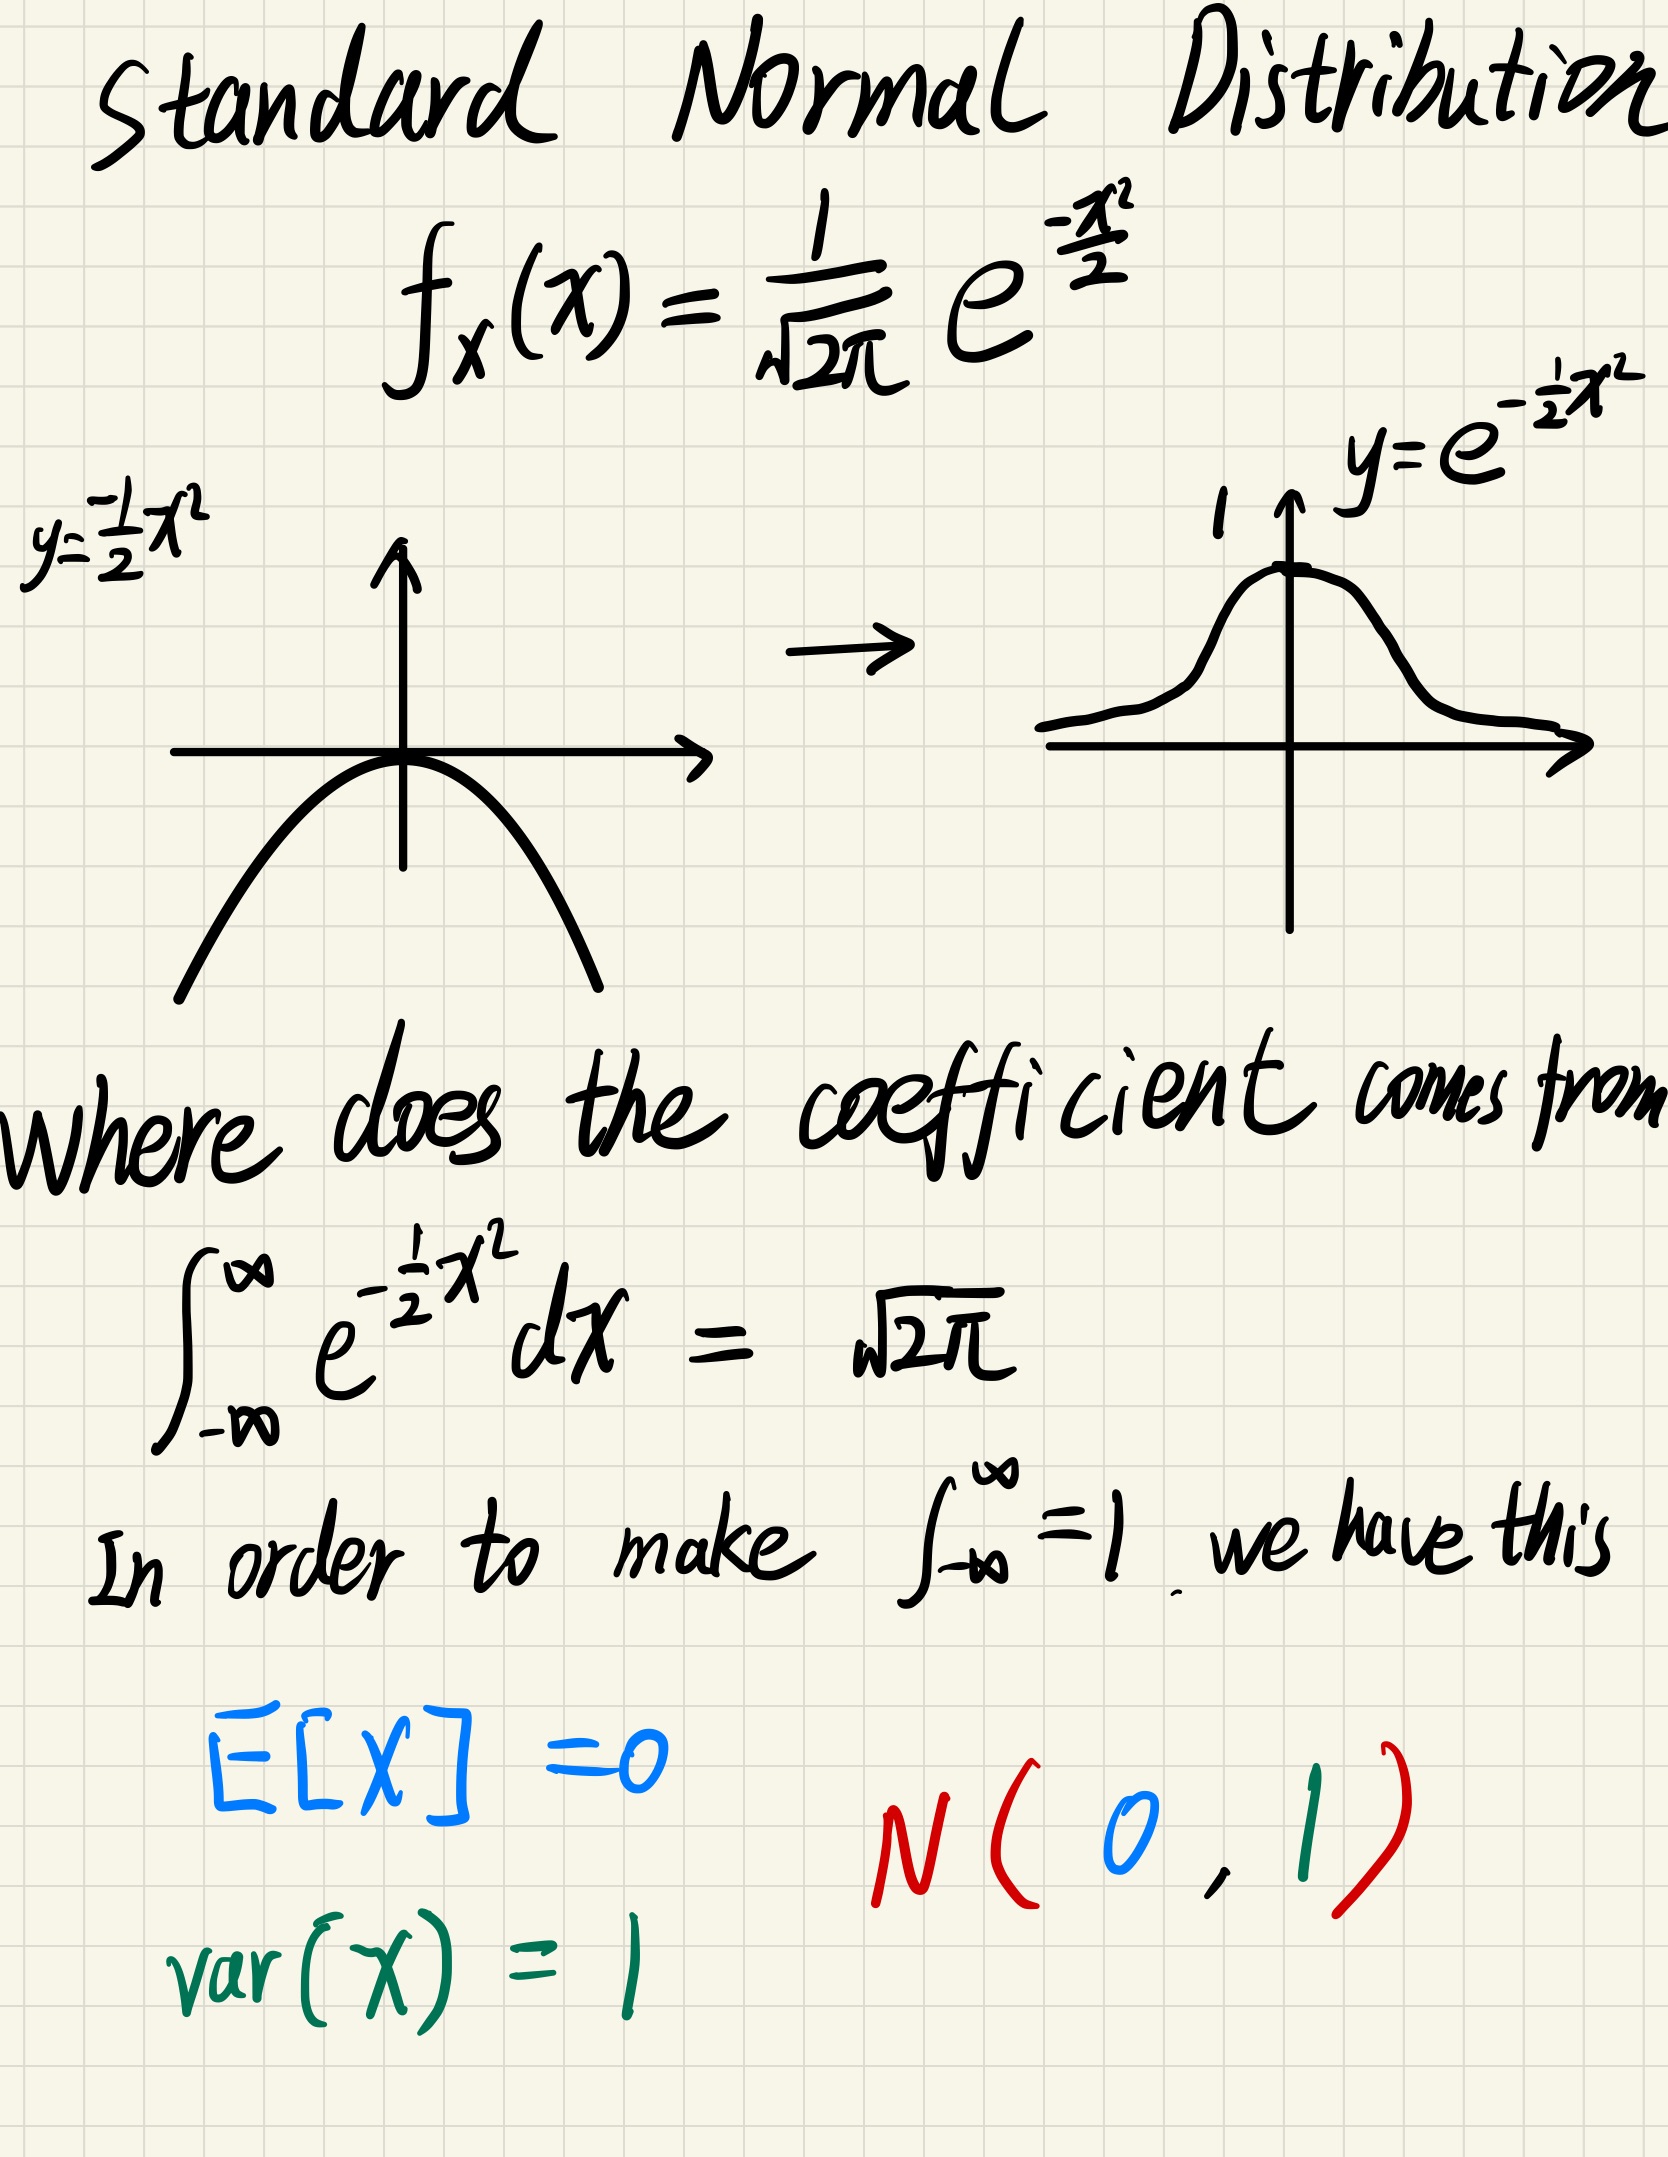 Standard Normal Distribution
f_X(x) = \frac{1}{\sqrt{2π}} e^{\frac{-x²}{2}}
y = e^{-\frac{1}{2}x²}
y = \frac{-1}{2}x²
1
Where does the coefficient comes from
∫_{-∞}^{∞} e^{-\frac{1}{2}x²} dx = \sqrt{2π}
In order to make ∫_{-∞}^{∞} = 1 . we have this
E[X] = 0
N( 0 , 1 )
var(X) = 1